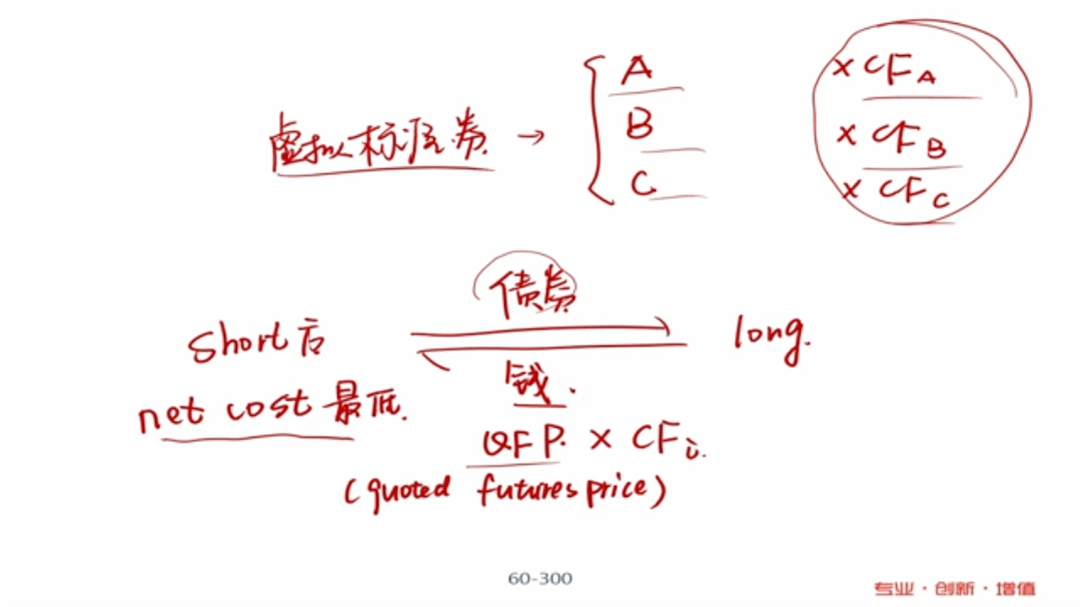 A × CFA
虚拟标准券 → B × CFB
C × CFC
债券
short后 long.
net cost 最低. 钱.
QFP. × CFi.
(quoted futures price)
60-300
专业·创新·增值